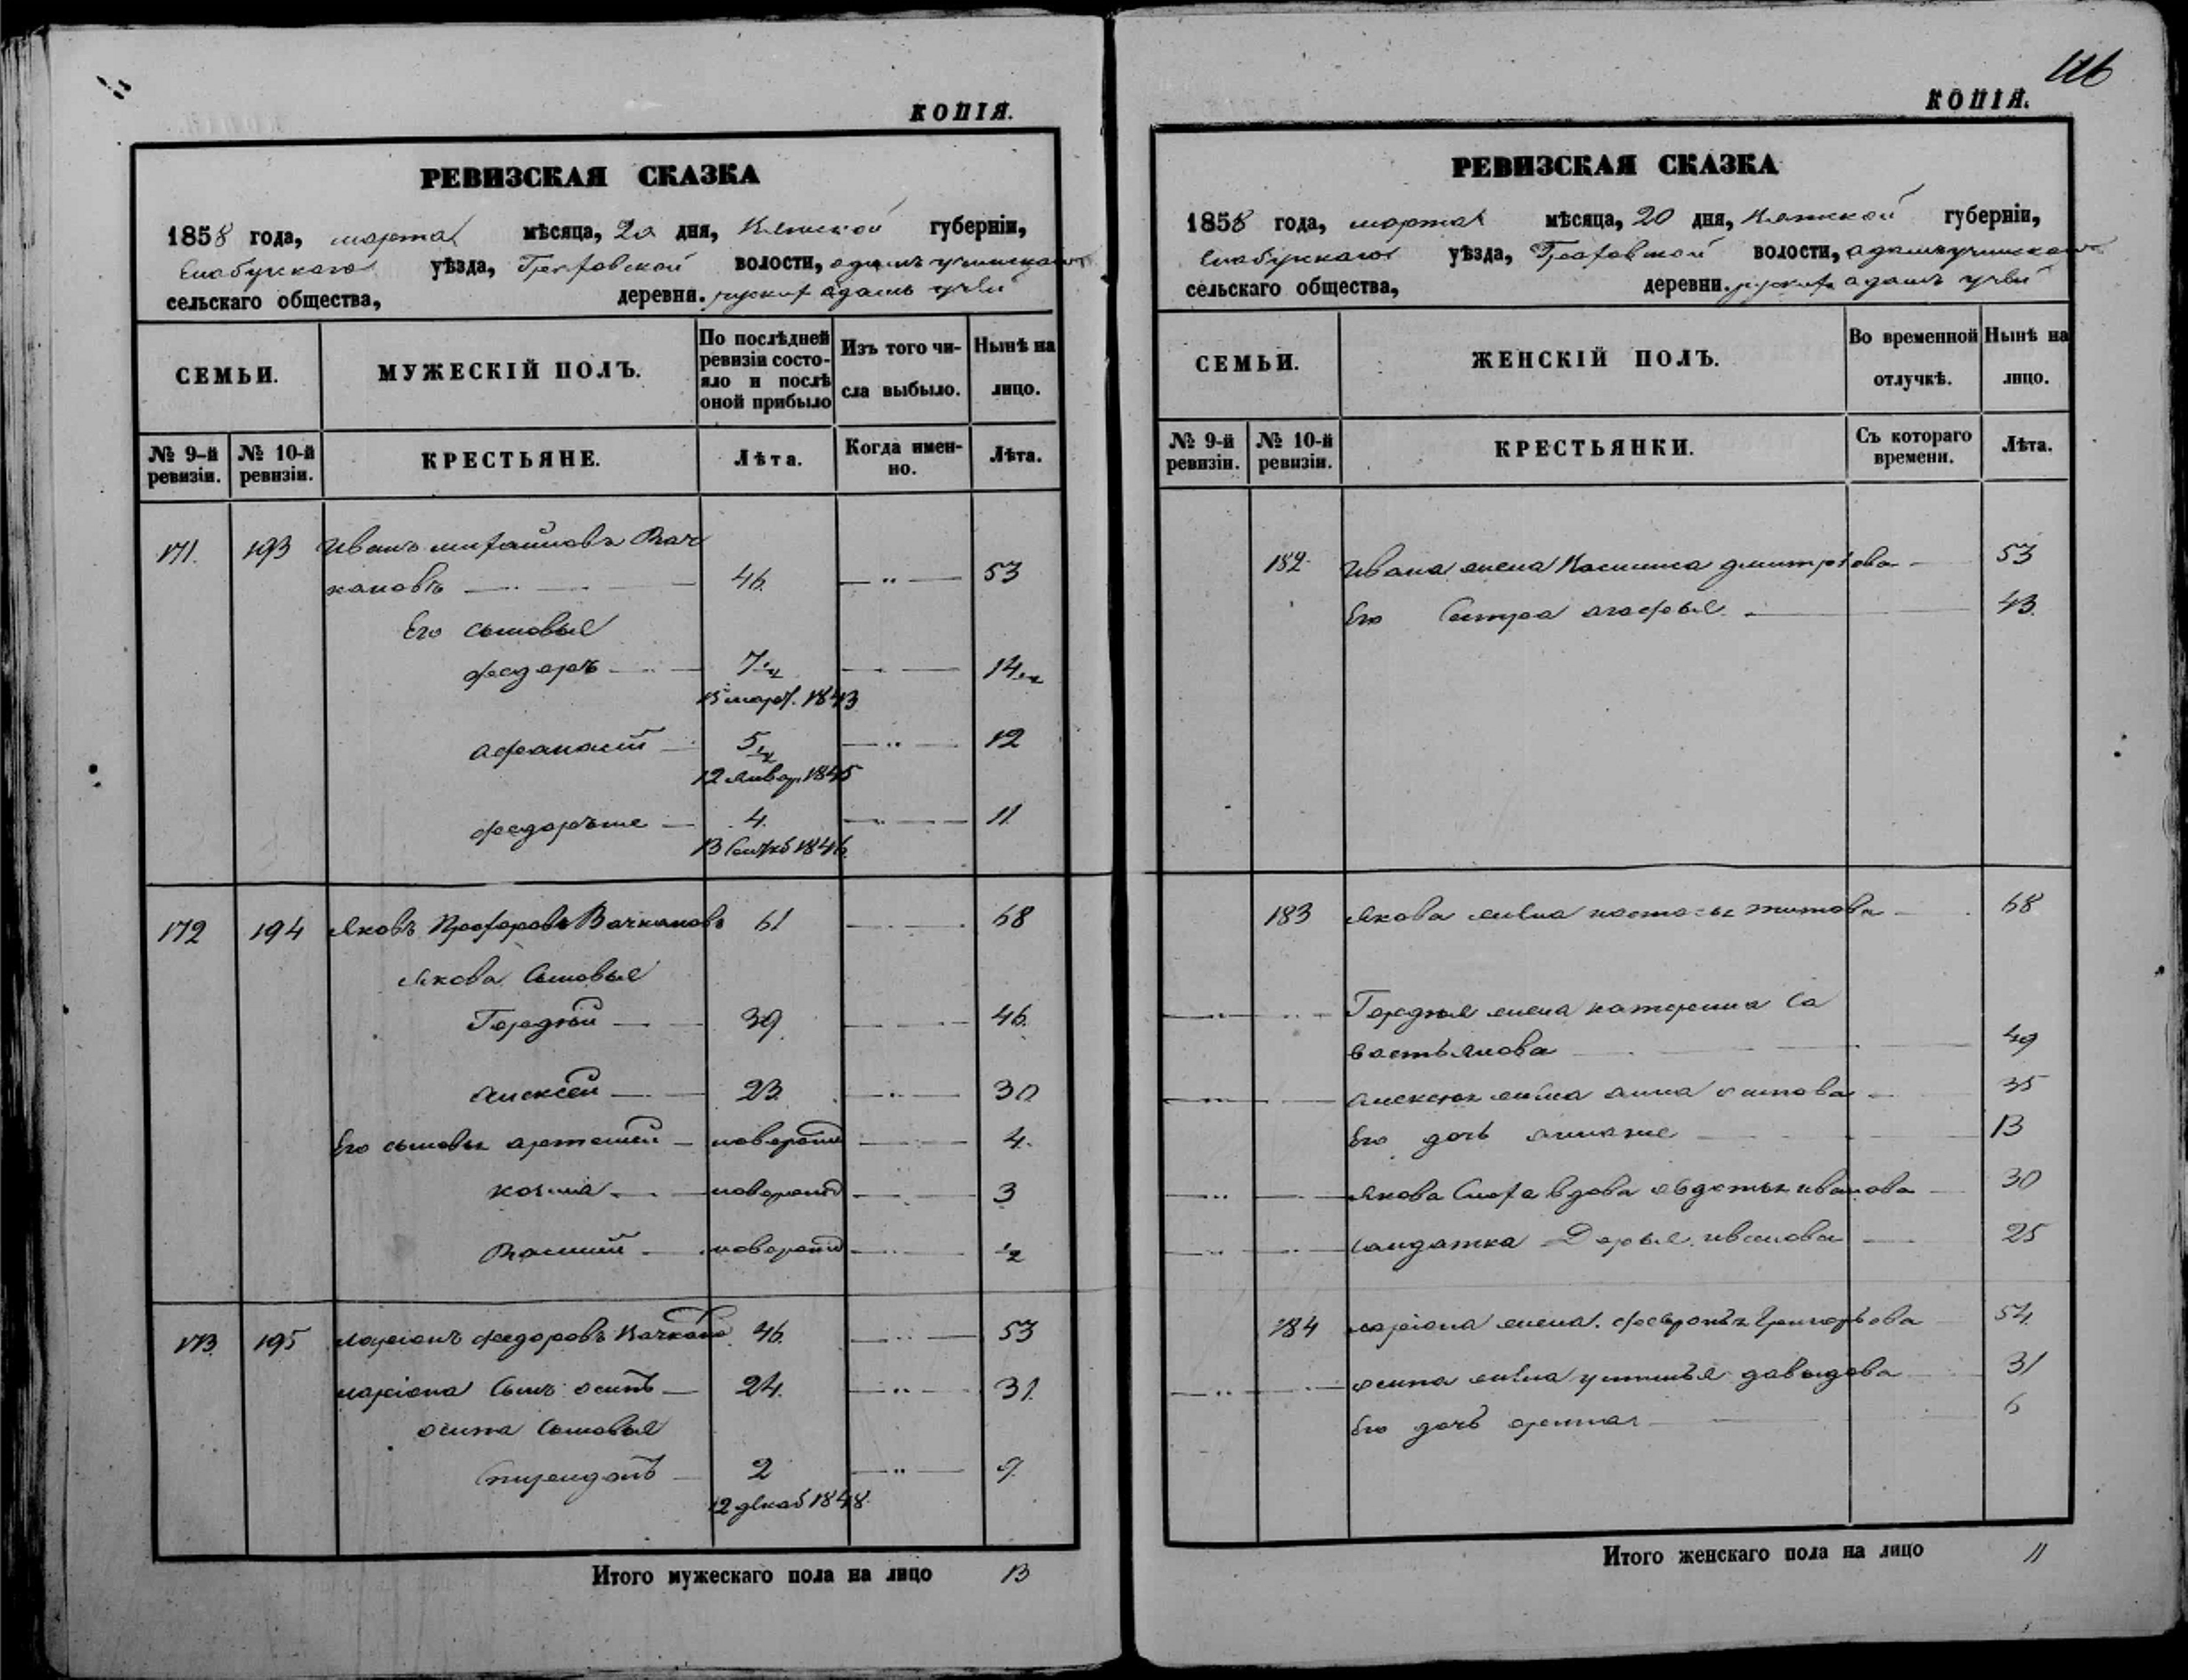 КОПІЯ.
РЕВИЗСКАЯ СКАЗКА
1858 года, марта мѣсяца, 20 дня, Вятской губерніи,
Елабужскаго уѣзда, Граховской волости, адамъ учинскаго
сельскаго общества, деревни. русских адамъ учей
СЕМЬИ. МУЖЕСКІЙ ПОЛЪ. По послѣдней ревизіи состояло и послѣ оной прибыло Изъ того числа выбыло. Нынѣ на лицо.
№ 9-й ревизіи. № 10-й ревизіи. КРЕСТЬЯНЕ. Лѣта. Когда именно. Лѣта.
171. 193 Иванъ михайловъ Вач
кановъ 46. 53
Его сыновья
федоръ 7 1/2 14 1/2
15 мар. 1843
афанасій 5 1/2 12
12 Январ. 1845
федоръ же 4. 11
13 Сентяб 1846.
172 194 Яковъ Прохоровъ Вачкановъ 61 68
Якова Сыновья
Гордѣй 39. 46.
Алексей 23. 30
Его сыновья артемей новорожд 4.
козма новорожд 3
Василий новорожд 1/2
173. 195 ларіонъ федоровъ Вачкано 46. 53
ларіона Сынъ осипъ 24. 31.
осипа Сыновья
Спиридонъ 2 9.
12 декаб 1848.
Итого мужескаго пола на лицо 13
116
КОПІЯ.
РЕВИЗСКАЯ СКАЗКА
1858 года, марта мѣсяца, 20 дня, Вятской губерніи,
Елабужскаго уѣзда, Граховской волости, адамъучинскаго
сельскаго общества, деревни. русских адамъ учей
СЕМЬИ. ЖЕНСКІЙ ПОЛЪ. Во временной отлучкѣ. Нынѣ на лицо.
№ 9-й ревизіи. № 10-й ревизіи. КРЕСТЬЯНКИ. Съ котораго времени. Лѣта.
182. Ивана жена Василиса дмитріева 53
Его Сестра агафья 43.
183 Якова жена настасья титова 68
Гордея жена катерина Са
востьянова 49
алексея жена анна осипова 35
Его дочь 13
Якова Сноха вдова авдотья иванова 30
салдатка Дарья иванова 25
184 ларіона жена. февронья Григорьева 54.
осипа жена устинья давыдова 31
Его дочь арина 6
Итого женскаго пола на лицо 11